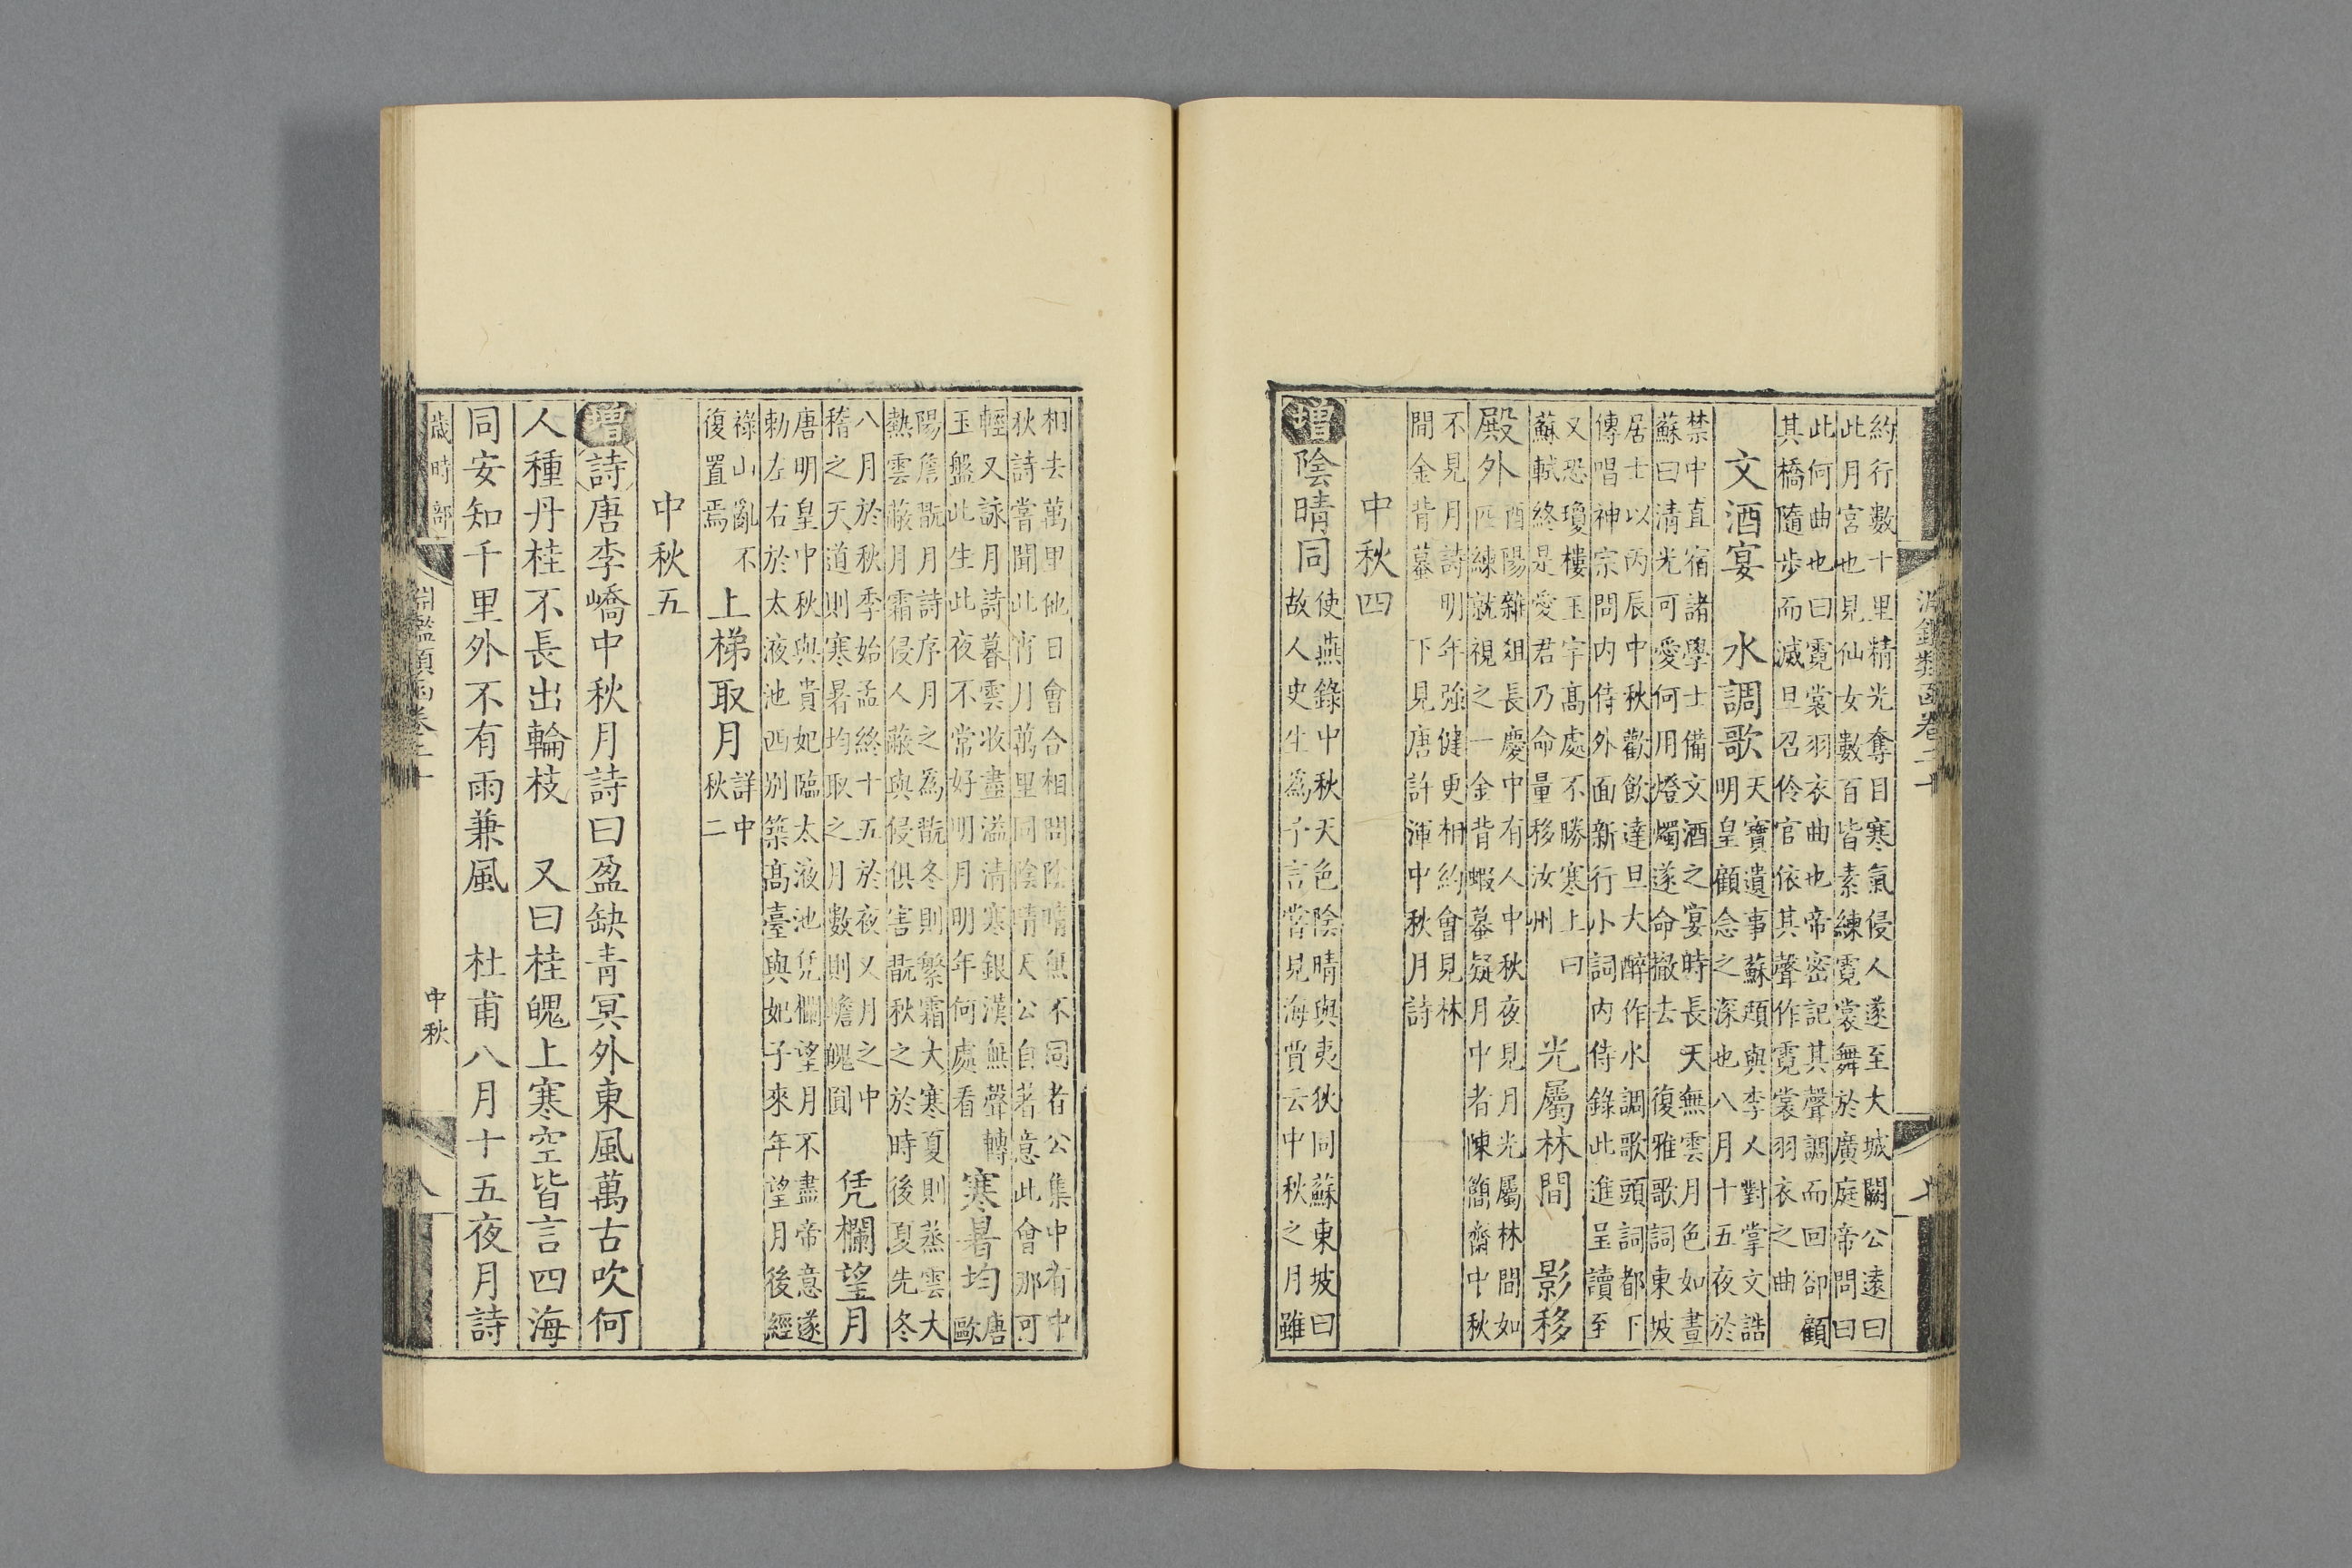 淵鑑類函卷二十
約行數十里精光奪目寒氣侵人遂至大城闕公遠曰
此月宮也見仙女數百皆素練霓裳舞於廣庭帝問曰
此何曲也曰霓裳羽衣曲也帝密記其聲調而回卻顧
其橋隨步而滅旦召伶官依其聲作霓裳羽衣之曲
文酒宴 水調歌
天寶遺事蘇頲與李乂對掌文誥
明皇顧念之深也八月十五夜於
禁中直宿諸學士備文酒之宴時長天無雲月色如晝
蘇曰清光可愛何用燈燭遂命撤去 復雅歌詞東坡
居士以丙辰中秋歡飲達旦大醉作水調歌頭詞都下
傳唱神宗問内侍外面新行小詞内侍錄此進呈讀至
又恐瓊樓玉宇高處不勝寒上曰
蘇軾終是愛君乃命量移汝州
光屬林間 影移
殿外
酉陽雜俎長慶中有人中秋夜見月光屬林間如
匹練就視之一金背蝦蟇疑月中者陳簡齋中秋
不見月詩明年強健更相約會見林
間金背蟇 下見唐許渾中秋月詩
中秋四
增陰晴同
使燕錄中秋天色陰晴與夷狄同蘇東坡曰
故人史生為予言嘗見海賈云中秋之月雖
相去萬里他日會合相問陰晴無不同者公集中有中
秋詩嘗聞此宵月萬里同陰晴天公自著意此會那可
輕又詠月詩暮雲收盡溢清寒銀漢無聲轉
玉盤此生此夜不常好明月明年何處看
寒暑均
唐
歐
陽詹翫月詩序月之為翫冬則繁霜大寒夏則蒸雲大
熱雲蔽月霜侵人蔽與侵俱害翫秋之於時後夏先冬
八月於秋季始孟終十五於夜又月之中
稽之天道則寒暑均取之月數則蟾魄圓
凭欄望月
唐明皇中秋與貴妃臨太液池凭欄望月不盡帝意遂
勅左右於太液池西別築高臺與妃子來年望月後經
祿山亂不
復置焉
上梯取月
詳中
秋二
中秋五
增詩唐李嶠中秋月詩曰盈缺青冥外東風萬古吹何
人種丹桂不長出輪枝 又曰桂魄上寒空皆言四海
同安知千里外不有雨兼風 杜甫八月十五夜月詩
歲時部 淵鑑類函卷二十 中秋 八